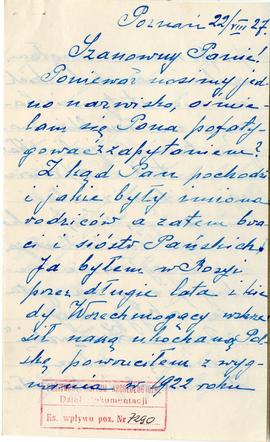 Poznań 22/VIII 27.
Szanowny Panie!
Ponieważ nosimy jed-
no nazwisko, ośmie-
lam się Pana pofaty-
gować zapytaniem?
Z kąd Pan pochodzi
i jakie były imiona
rodziców a zatem bra-
ci i sióstr Pańskich.
Ja byłem w Rosji
przez długie lata i kie-
dy Wszechmogący wskrze-
sił naszą ukochaną Pol-
skę, powróciłem z wyg-
nania z 1922 roku
ARCHEOLOGICZNE
Dział Dokumentacji
Ks. wpływu poz. Nr 7290